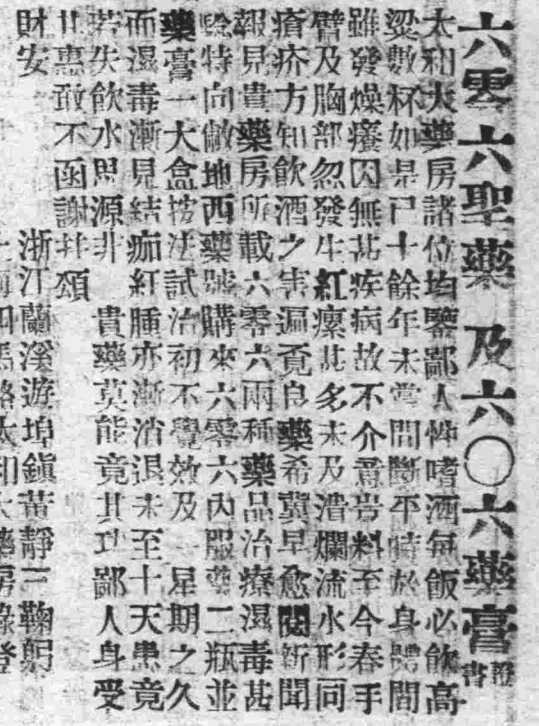 六零六聖藥 及六〇六藥膏 證書
太和大藥房諸位均鑒鄙人性嗜酒每飯必飲高
粱數杯如是已十餘年未嘗間斷平時於身體間
雖發燥癢因無甚疾病故不介意豈料至今春手
臂及胸部忽發生紅瘰甚多未及潰爛流水形同
瘡疥方知飲酒之害遍覓良藥希冀早愈閱新聞
報見貴藥房所載六零六兩種藥品治療濕毒甚
驗特向敝地西藥號購來六零六內服藥二瓶並
藥膏一大盒按法試治初不覺效及 星期之久
而濕毒漸見結痂紅腫亦漸消退未至十天患竟
若失飲水思源非 貴藥莫能竟其功鄙人身受
其惠敢不函謝并頌
財安 浙江蘭溪遊埠鎮黃靜三鞠躬
四馬路太和大藥房錄登